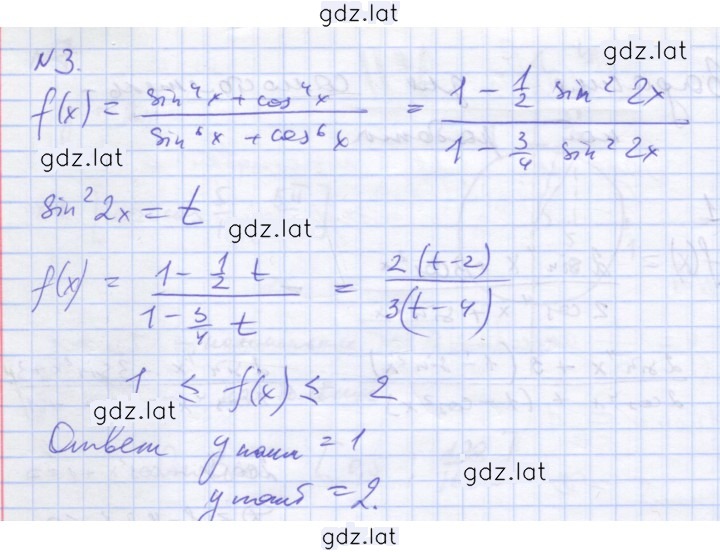 gdz.lat
№3.
gdz.lat
f(x) = (sin⁴x + cos⁴x)/(sin⁶x + cos⁶x) = (1 - 1/2 sin² 2x)/(1 - 3/4 sin² 2x)
gdz.lat
sin² 2x = t
gdz.lat
f(x) = (1 - 1/2 t)/(1 - 3/4 t) = 2(t-2)/3(t-4)
1 ≤ f(x) ≤ 2
gdz.lat
Ответ y наим = 1
gdz.lat
y наиб = 2.
gdz.lat